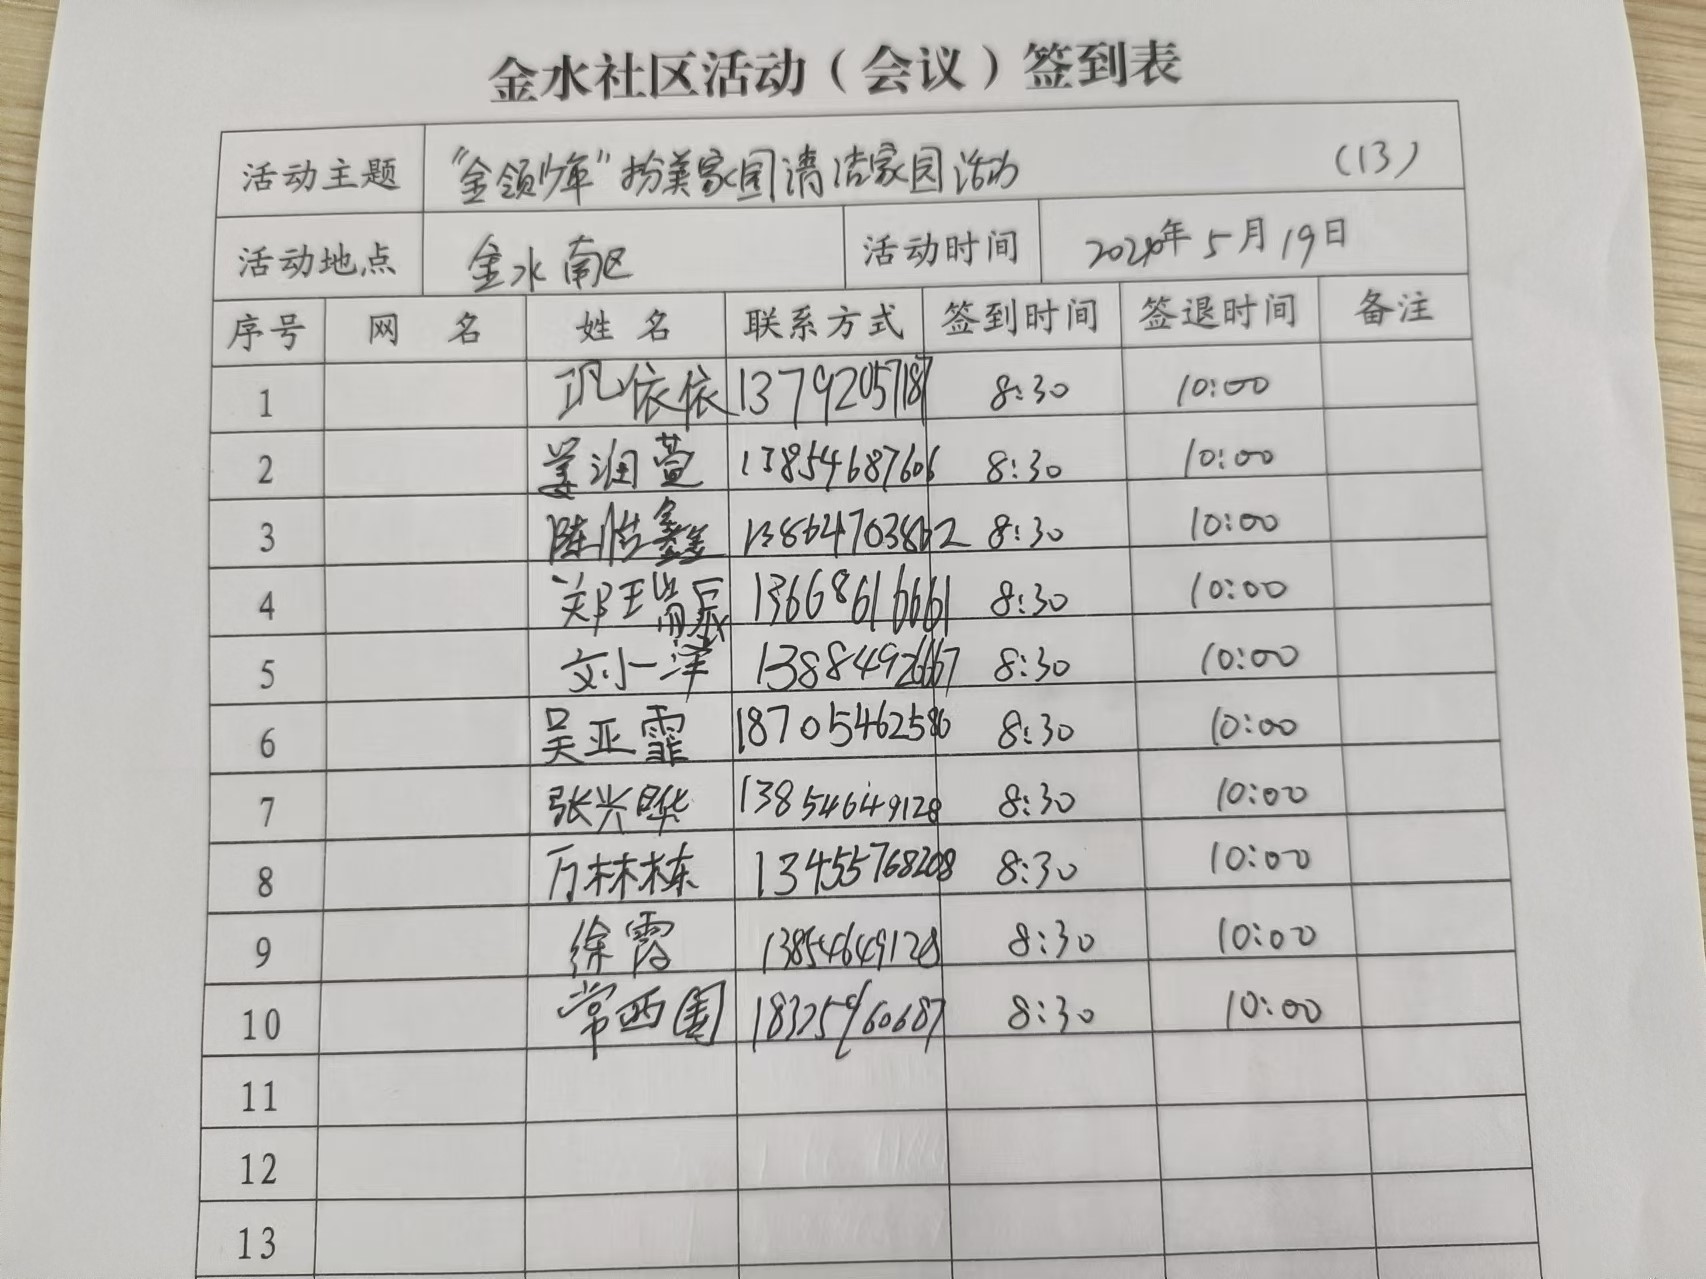 金水社区活动（会议）签到表
活动主题 “金领少年”扮美家园清洁家园活动 （13）
活动地点 金水南区 活动时间 2024年5月19日
序号 网 名 姓 名 联系方式 签到时间 签退时间 备注
1 巩依依 13792057187 8:30 10:00
2 姜润萱 13854687606 8:30 10:00
3 陈浩鑫 13864703862 8:30 10:00
4 郑王晨 13668616661 8:30 10:00
5 刘一泽 13884926667 8:30 10:00
6 吴亚霏 18705462586 8:30 10:00
7 张兴晔 13854649128 8:30 10:00
8 万林栋 13455768208 8:30 10:00
9 徐霞 13854649128 8:30 10:00
10 常西国 18325960687 8:30 10:00
11
12
13